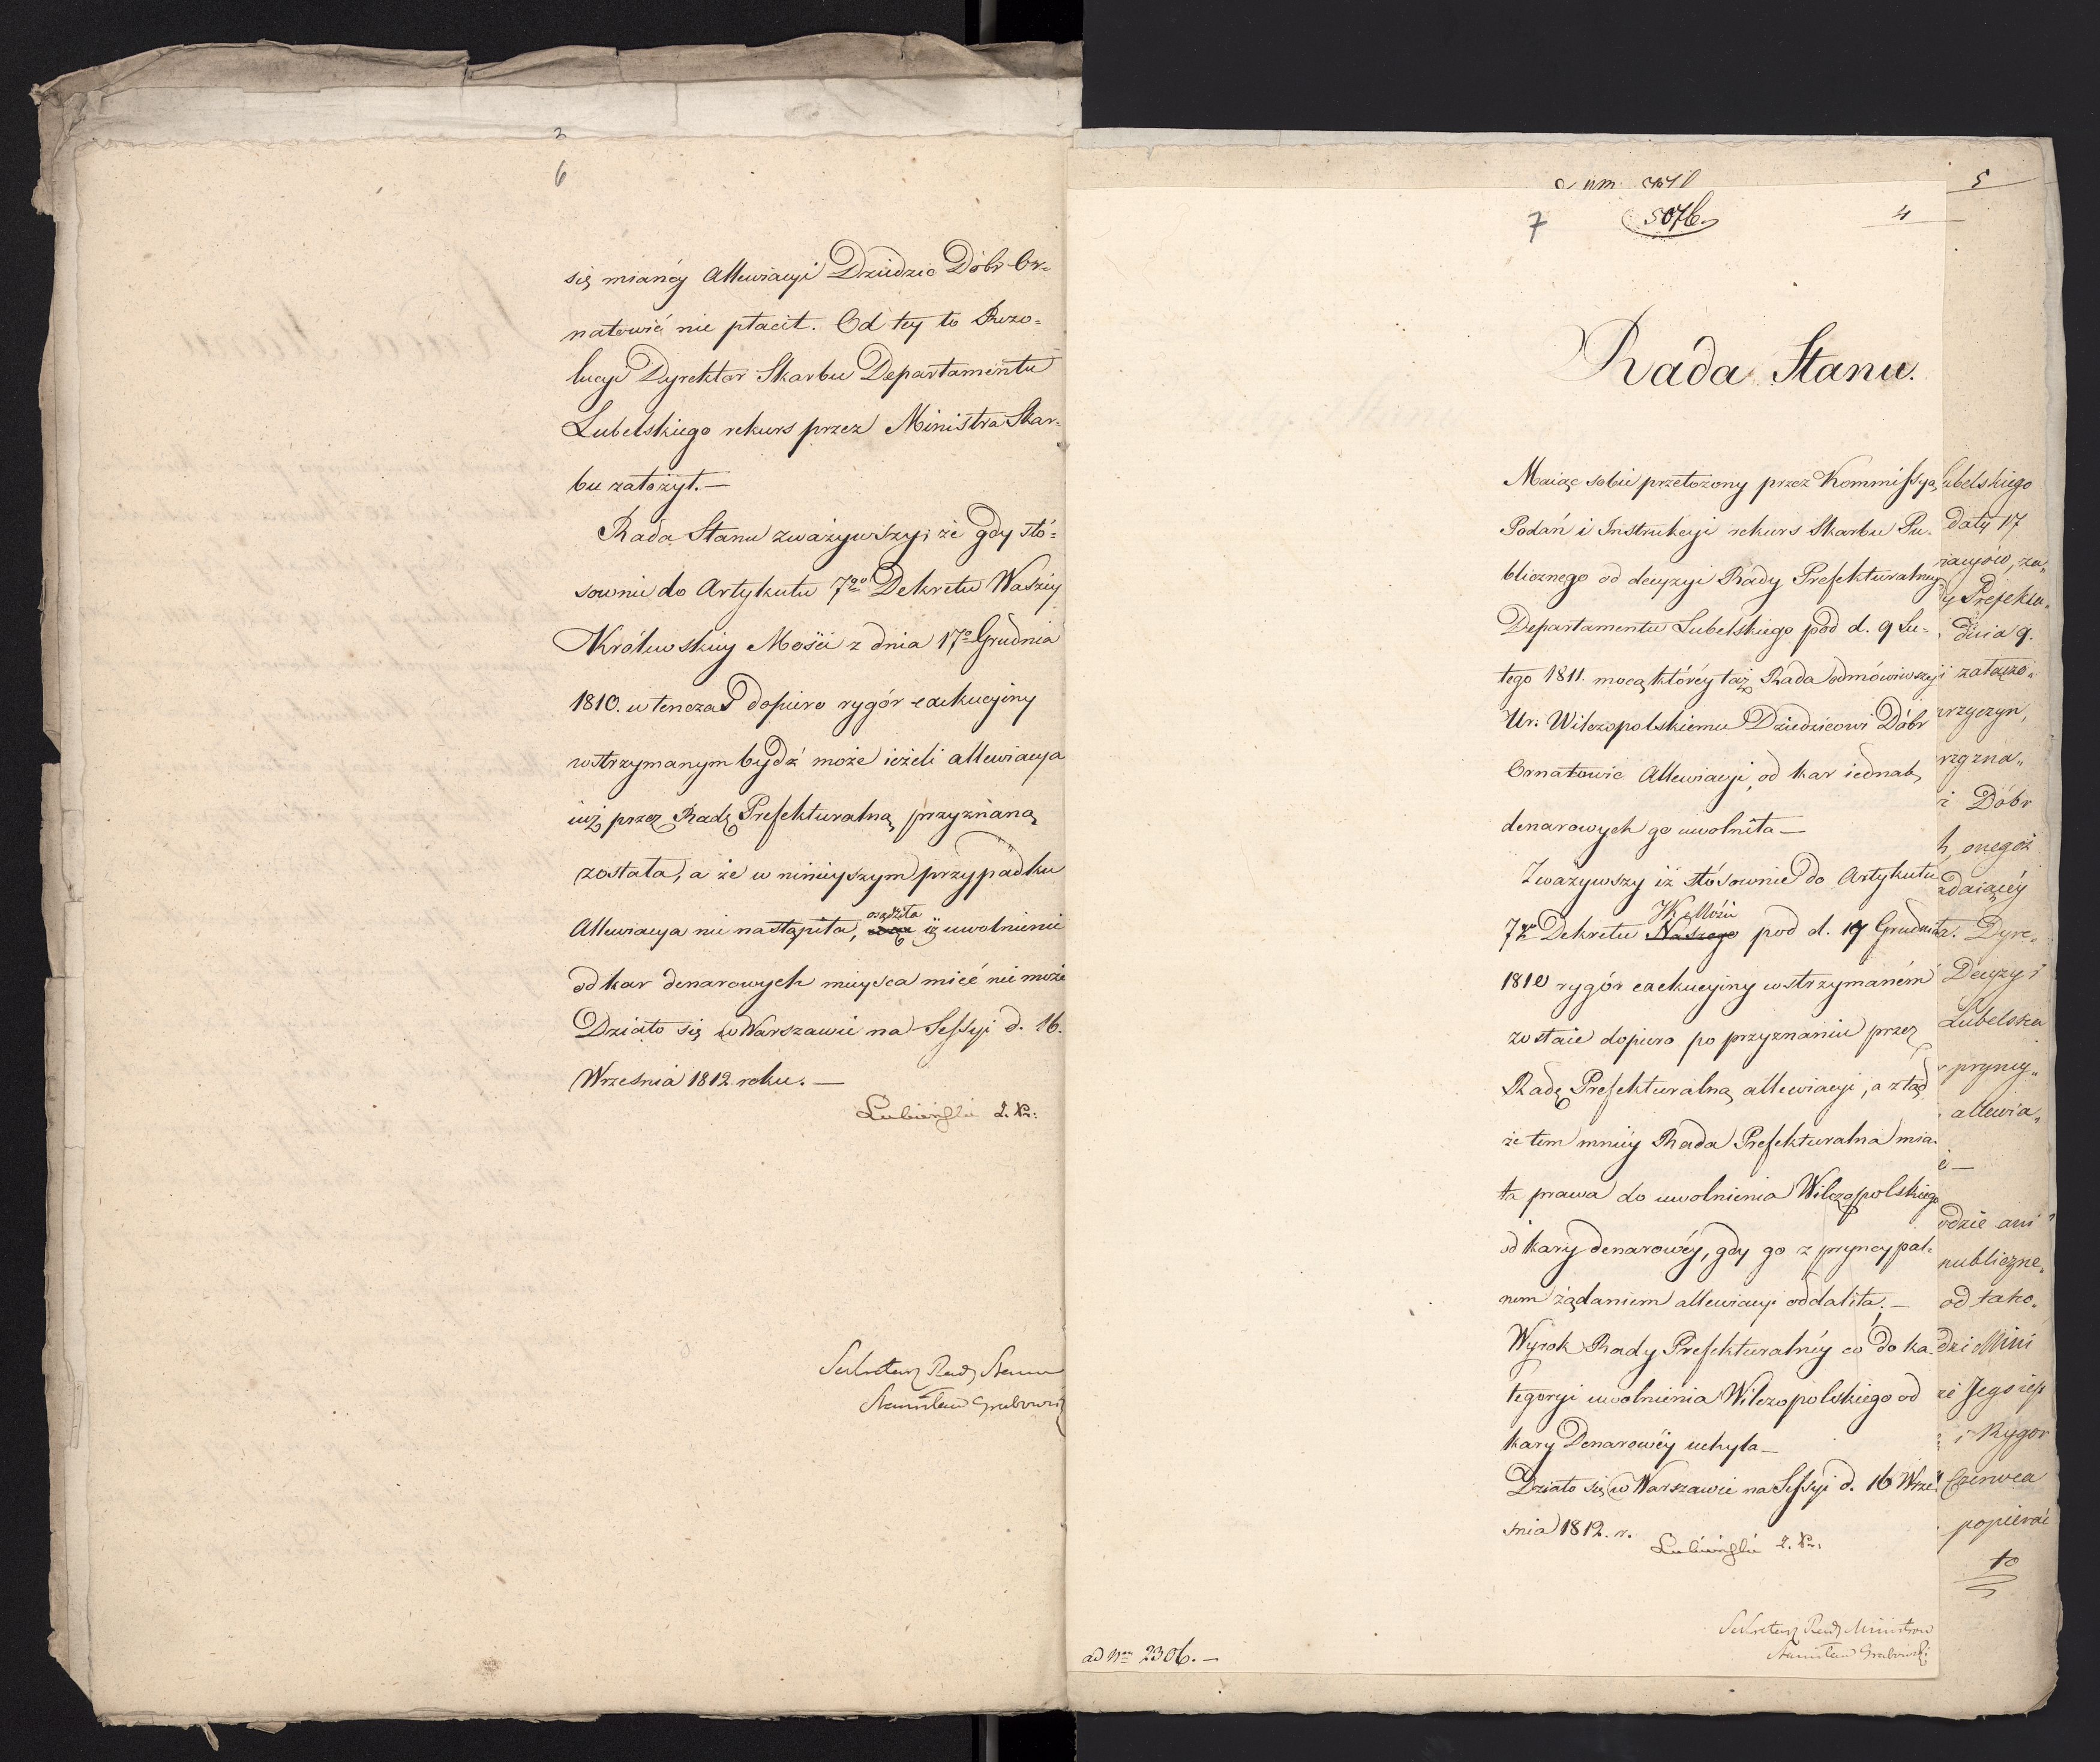 2
6
się mianéy Allewiacyi Dziedzic Dóbr Or-
natowic nie płacił. Od tey to Rezo-
lucyi Dyrektor Skarbu Departamentu
Lubelskiego rekurs przez Ministra Skar-
bu założył. —
Rada Stanu zważywszy, że gdy stó-
sownie do Artykułu 7go Dekretu Waszéy
Królewskiéy Mości z dnia 17o Grudnia
1810. w tenczas dopiero rygór exekucyiny
wstrzymanym bydź może ieżeli allewiacya
iuż przez Radę Prefekturalną przyznaną
została, a że w ninieyszym przypadku
Allewiacya nie nastąpiła, osądziła iż uwolnienie
od kar denarowych mieysca mieć nie może
Działo się w Warszawie na Sessyi d. 16.
Września 1812 roku. —
Lubieński
Sekretarz Rady Stanu
Stanisław Grabowski
7
5076.
4
5
Rada Stanu.
Maiąc sobie przełożony przez Kommissyą
Podań i Instrukcyi rekurs Skarbu Pu-
blicznego od decyzyi Rady Prefekturalney
Departamentu Lubelskiego pod d. 9 Lu-
tego 1811. mocą któréy taż Rada odmówiwszy
Ur. Wilczopolskiemu Dziedzicowi Dóbr
Ornatowic Allewiacyi, od kar iednak
denarowych go uwolniła —
Zważywszy iż stósownie do Artykułu
7go Dekretu Naszego WKMości pod d. 17 Grudnia
1810 rygór exekucyiny wstrzymaném
zostaie dopiero po przyznaniu przez
Radę Prefekturalną allewiacyi, a ztąd
że tem mniéy Rada Prefekturalna mia-
ła prawa do uwolnienia Wilczopolskiego
od kary denarowéy, gdy go z pryncypal-
nem żądaniem allewiacyi oddaliła. —
Wyrok Rady Prefekturalnéy co do ka-
tegoryi uwolnienia Wilczopolskiego od
kary Denarowéy uchyla —
Działo się w Warszawie na Sessyi d. 16 Wrze-
śnia 1812. r.
Lubieński
Sekretarz Rady Ministrów
Stanisław Grabowski
ad Nrum 2306. —
ubelskiego
daty 17
riacyiów, za„
y Prefektu„
dnia 9.
i załączo„
przyczyn,
i Dóbr
h, onegoż
adaiącéy
Dyre„
Decyzyi
Lubelska
pryncy„
allewia„
odzie ani
publiczne„
od tako„
dzi Mini
że Jego iest
i Rygor
Czerwca
popierać
to